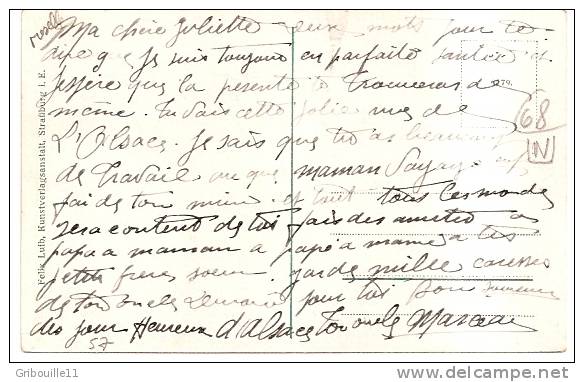 Moselle
Ma chère Juliette deux mots pour te
dire que Je suis toujours en parfaite santée et
J'espère que la presente te trouveras de
même. Tu vois cette Jolie vue de
L'Alsace. Je sais que tu as beaucoup
de travail vu que maman voyage
fai de ton mieu et tout tous les monde
sera content de toi fais des amitié a
papa a maman a papé a mamé a tes
petits frères soeur. garde mille caresses
de ton oncle pour toi Bon
des jour Heureux d'Alsace Ton oncle Marceau
Felix Luib, Kunstverlagsanstalt, Straßburg i. E.
279.
68
IN
57
Gribouille11
http://www.delcampe.net